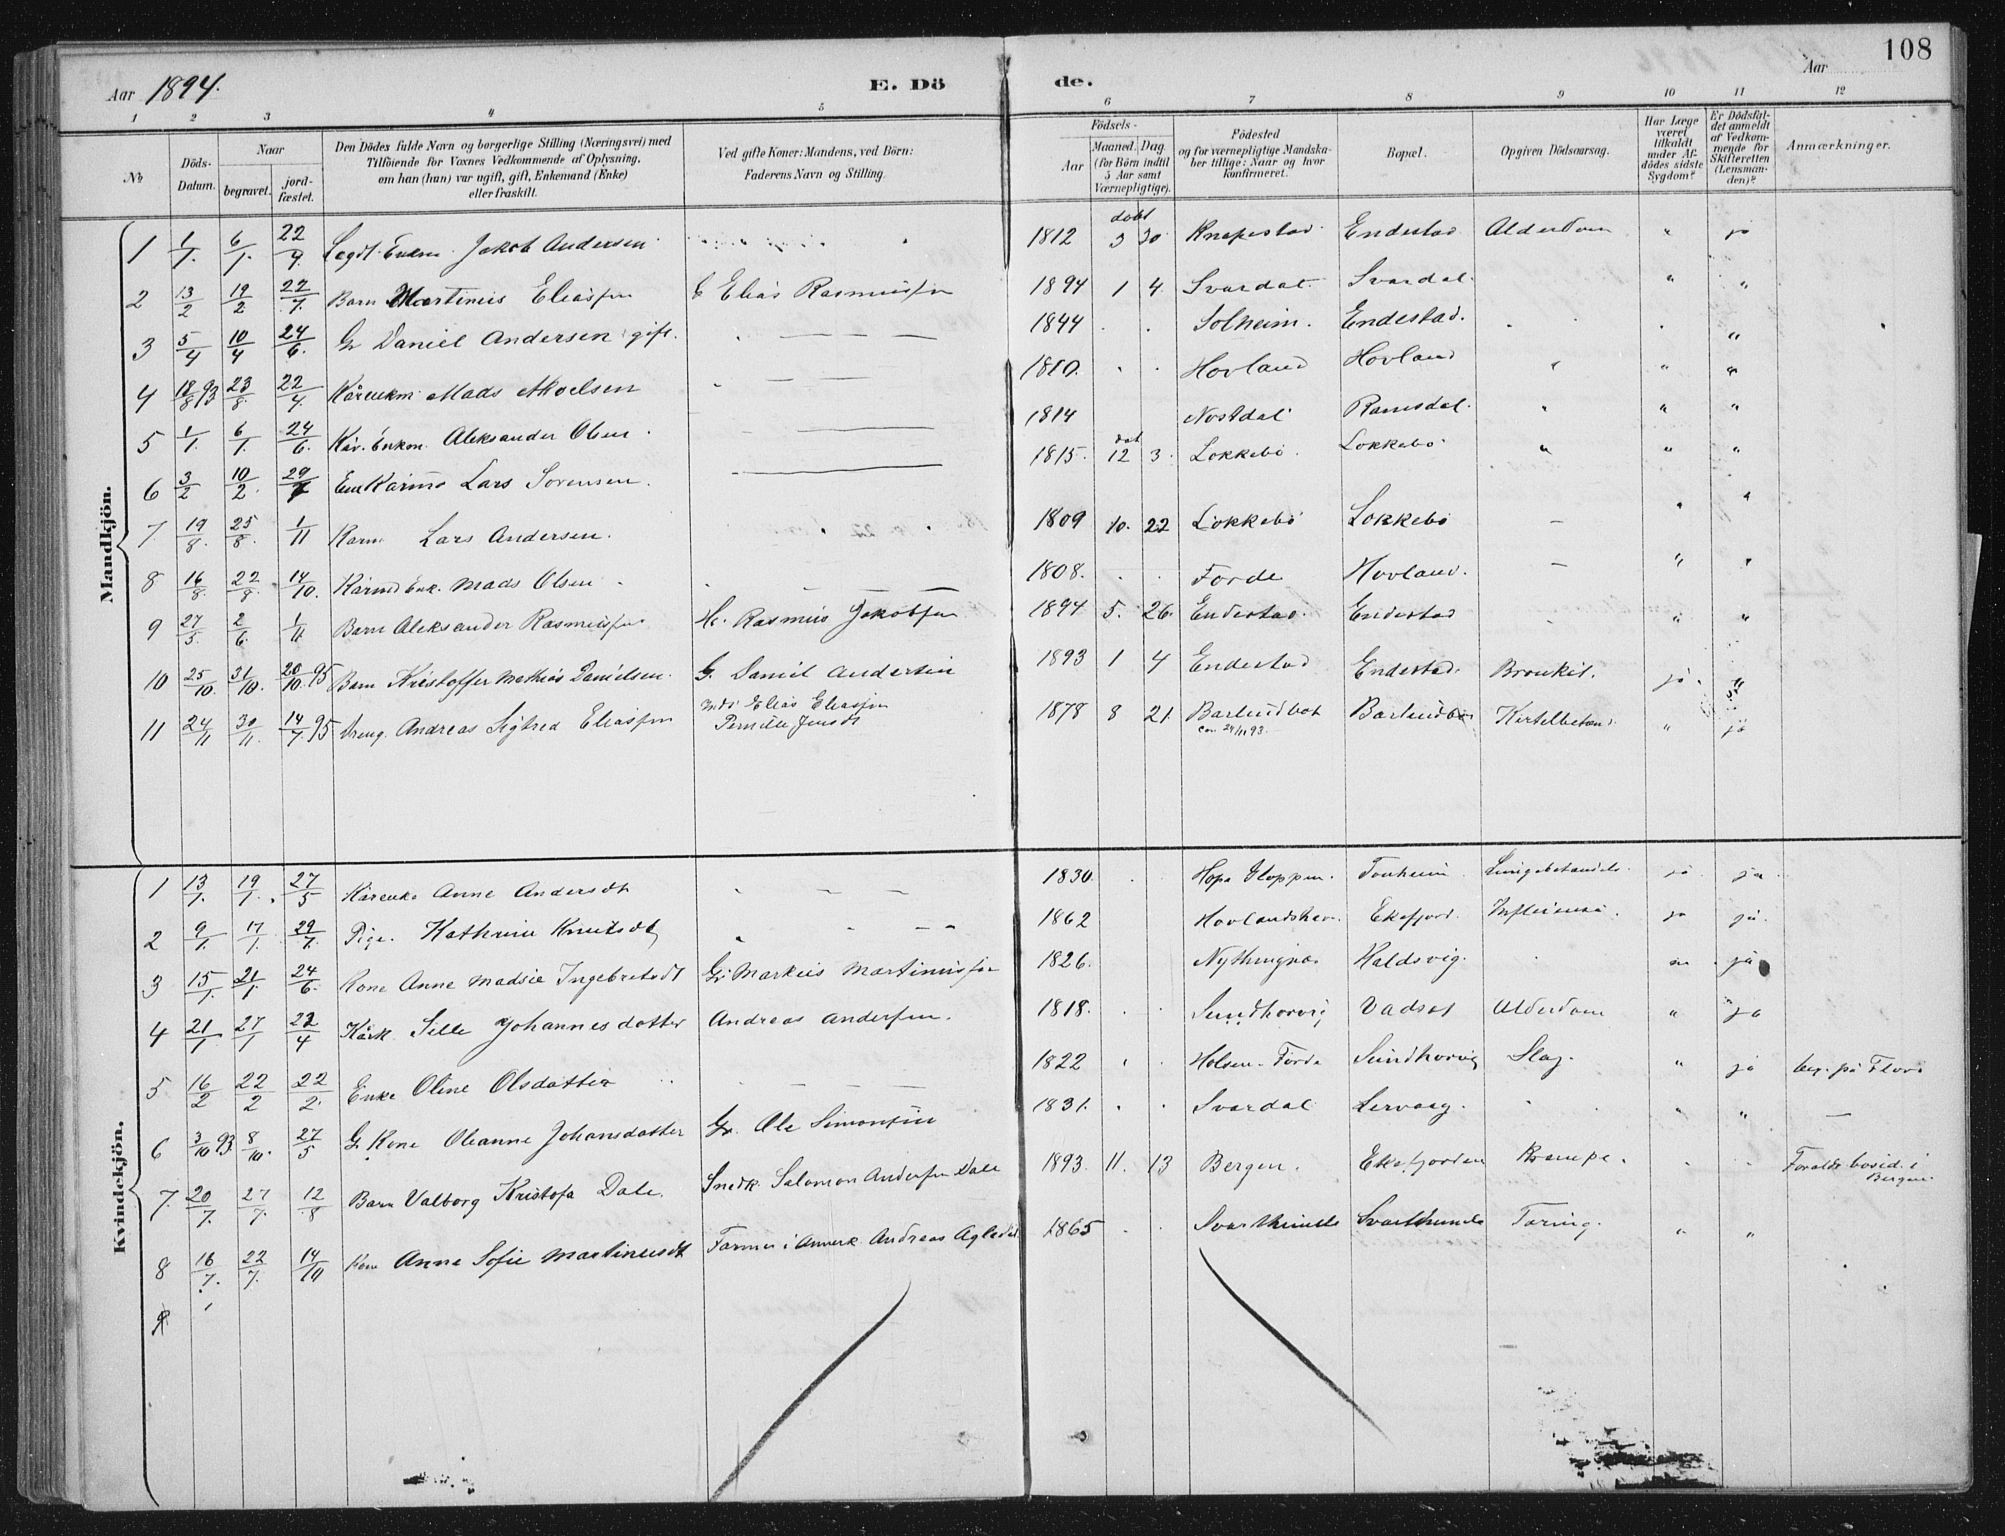 108
Aar 1894.
E. Dö
de.
Aar
1 2 3 4 5 6 7 8 9 10 11 12
№
Döds-Datum.
Naar
begravet.
jord-fæstet.
Den Dödes fulde Navn og borgerlige Stilling (Næringsvei) med
Tilföiende for Voxnes Vedkommende af Oplysning,
om han (hun) var ugift, gift, Enkemand (Enke)
eller fraskilt.
Ved gifte Koner: Mandens, ved Börn:
Faderens Navn og Stilling.
Födsels-
Aar
Maaned. Dag.
(for Börn indtil
5 Aar samt
Værnepligtige).
Födested
og for værnepligtige Mandska-
ber tillige: Naar og hvor
konfirmeret.
Bopæl.
Opgiven Dödsaarsag.
Har Læge
været
tilkaldt
under Af-
dödes sidste
Sygdom?
Er Dödsfal-
det anmeldt
af Vedkom-
mende for
Skifteretten
(Lensman-
den)?
Anmærkninger.
Mandkjön.
1 1/1 6/1 22/9 Legdt. Enkm. Jakob Andersen 1812 döbt 3 30 Knapestad Endestad Alderdom " ja
2 13/2 19/2 22/7 Barn Martinus Eliassen G Elias Rasmussen 1894 1 4 Svardal Svardal " "
3 5/4 10/4 24/6 G Daniel Andersen gift. 1844 Solheim. Endestad. "
4 18/8 93 23/8 22/4 Kårenkm Mads 1810 Hovland Hovland " " "
5 1/1 6/1 24/6 Kår. Enkm. Aleksander Olsen 1814 Nostdal Ramsdal " " "
6 3/2 10/2 29/7 Lars Sörensen 1815 12 3 Lokkebö Lokkebö " " "
7 19/8 25/8 1/11 Karm Lars Andersen. 1809 10. 22 Lokkebö Lokkebö — " "
8 16/8 22/8 14/10 Mads Olsen 1808. Förde Hovland. — " "
9 27/5 2/6 1/11 Barn Aleksander Rasmussen Rasmus Jakobsen 1894 5. 26. Endestad Endestad " "
10 25/10 31/10 20/10 95 Barn Kristoffer Mathias Danielsen G. Daniel Andersen 1893 1 4 Endestad Endestad. Bronkit. ja "
11 24/11 30/11 14/7 95 Dreng. Andreas Sigfred Eliassen Inds Elias Eliassen
Pernille Jensdt 1878 8 21 Barlundbot Kirtelbetænd " ja
con 24/11 93
Kvindekjön.
1 13/1 19/1 27/5 Kårenke Anne Andersdt 1830 Hope Gloppen Tonheim Lungebetændels. ja ja
2 9/1 17/1 29/7 Pige. Kathrine Knutsdt 1862 Eikefjord. Influensa. ja ja
3 15/1 21/1 24/6 Kone Anne Madsie Ingebretsdt G Markus Martinussen 1826. Haldsvig. ja
4 21/1 27/1 22/4 Kårk. Sille Johannesdatter Andreas Andersen. 1818. Sundhorvig Vadset Alderdom " ja
5 16/2 22/2 22/2 Enke Oline Olsdatter 1822 Holsen - Förde Sundhorvig Slag. " ja beg. på Florö
6 3/10 93 8/10 27/5 G Kone Oleanne Johansdatter G. Ole Simonsen 1831. Svardal Lervaag. " " —
7 20/7 27/7 12/8 Barn Valborg Kristofa Dale. Snedk. Salomon Andersen Dale 1893 11. 13 Bergen. Eikefjorden Krampe. Foraldr bosid. i Bergen.
8 16/7. 22/7. 14/10 Kone Anne Sofie Martinusdt Farmer i Amerk. Andreas 1865 Svarthumle Svarthumle Tæring. " "